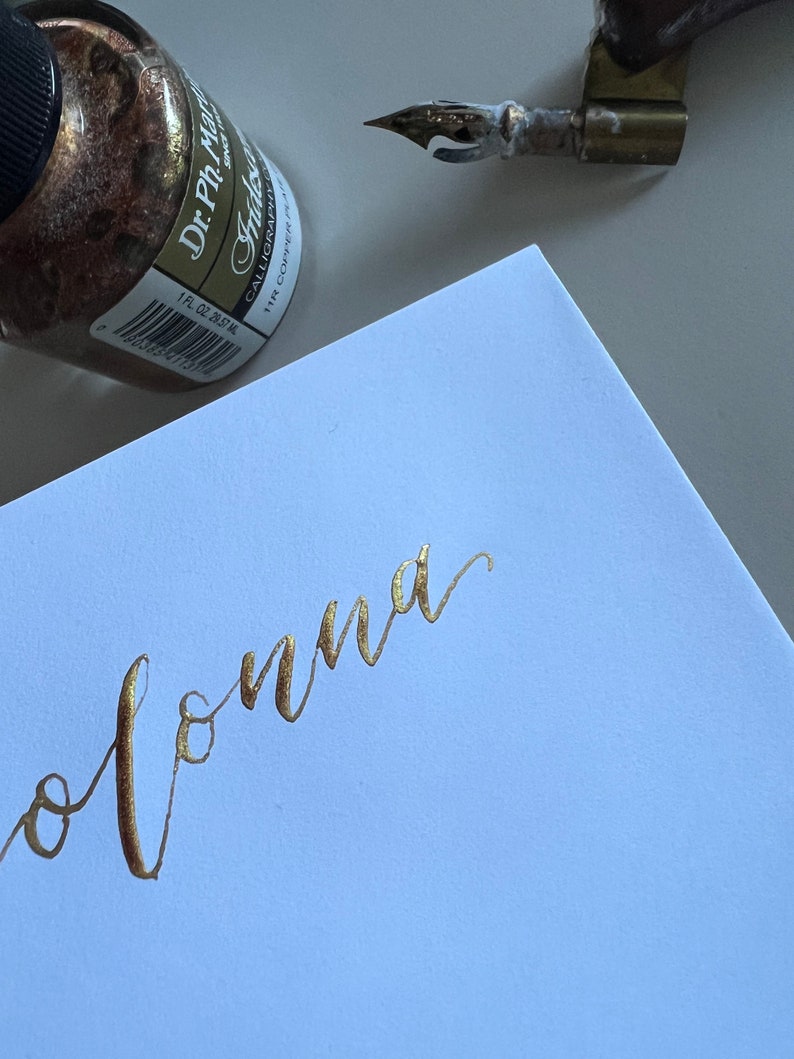 Dr. Ph. Mart
SINC
Iridesc
CALLIGRAPHY C
11R COPPER PLAT
1 FL. OZ. 29.57 ML
olonna